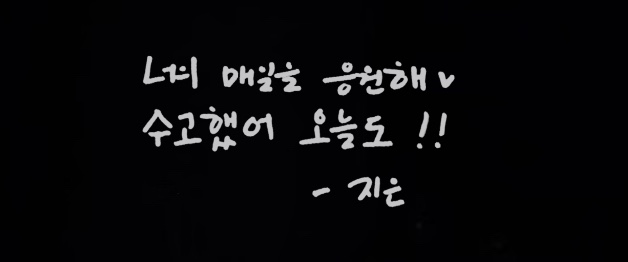 너의 매일을 응원해♥
수고했어 오늘도 !!
- 지은